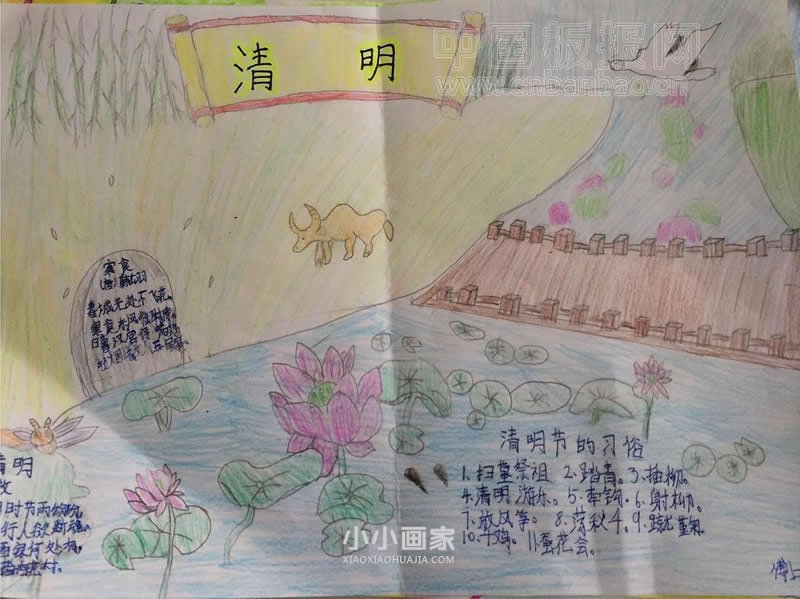 清 明
中国板报网
www.cnbanbao.cn
寒食
(唐)
春城无处不飞花,
寒食东风御柳斜。
日暮汉宫传
五侯家。
清明
牧
时节雨纷纷
行人欲断魂。
家何处有,
村。
清明节的习俗
1.扫墓祭祖 2.踏青。3.插柳。
4.清明游乐。5.牵钩。6.射柳。
7.放风筝。8.荡秋千。9.蹴鞠。
10.斗鸡。11.蚕花会。
小小画家
XIAOXIAOHUAJIA.COM